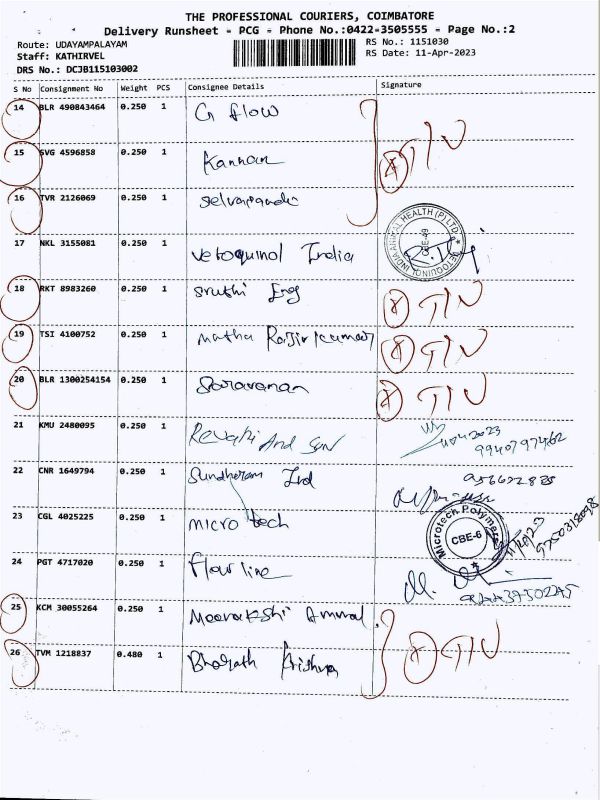 THE PROFESSIONAL COURIERS, COIMBATORE
Delivery Runsheet - PCG - Phone No.:0422-3505555 - Page No.:2
Route: UDAYAMPALAYAM
RS No.: 1151030
Staff: KATHIRVEL
RS Date: 11-Apr-2023
DRS No.: DCJB115103002
S No Consignment No Weight PCS Consignee Details Signature
14 BLR 490843464 0.250 1 G flow
15 SVG 4596858 0.250 1 Kannan T/V
16 TVR 2126069 0.250 1 Selvapandi
17 NKL 3155081 0.250 1 Vetoquinol India VETOQUINOL INDIA ANIMAL HEALTH (P) LTD. CBE-49
18 RKT 8983260 0.250 1 Sruthi Eng T/V
19 TSI 4100752 0.250 1 Matha T/V
20 BLR 1300254154 0.250 1 Saravanan T/V
21 KMU 2480095 0.250 1 Revathi And Son 9940797462
22 CNR 1649794 0.250 1 Sundharam Ind
23 CGL 4025225 0.250 1 micro tech Microtech Polymers CBE-6
24 PGT 4717020 0.250 1 Flow line
25 KCM 30055264 0.250 1 Meenakshi Ammal
26 TVM 1218837 0.480 1 Bharath Krishna T/V